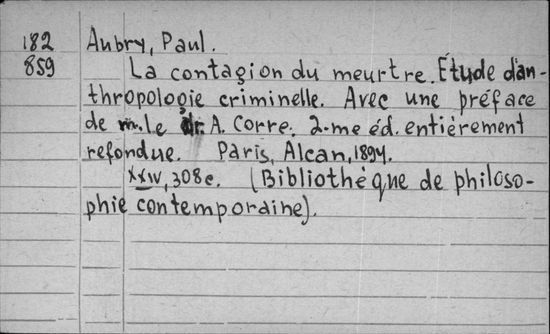 182 Aubry, Paul.
859 La contagion du meurtre. Étude d'an-
thropologie criminelle. Avec une préface
de m. le dr. A. Corre. 2-me éd. entièrement
refondue. Paris, Alcan, 1894.
XXIV, 308 c. (Bibliothèque de philoso-
phie contemporaine).